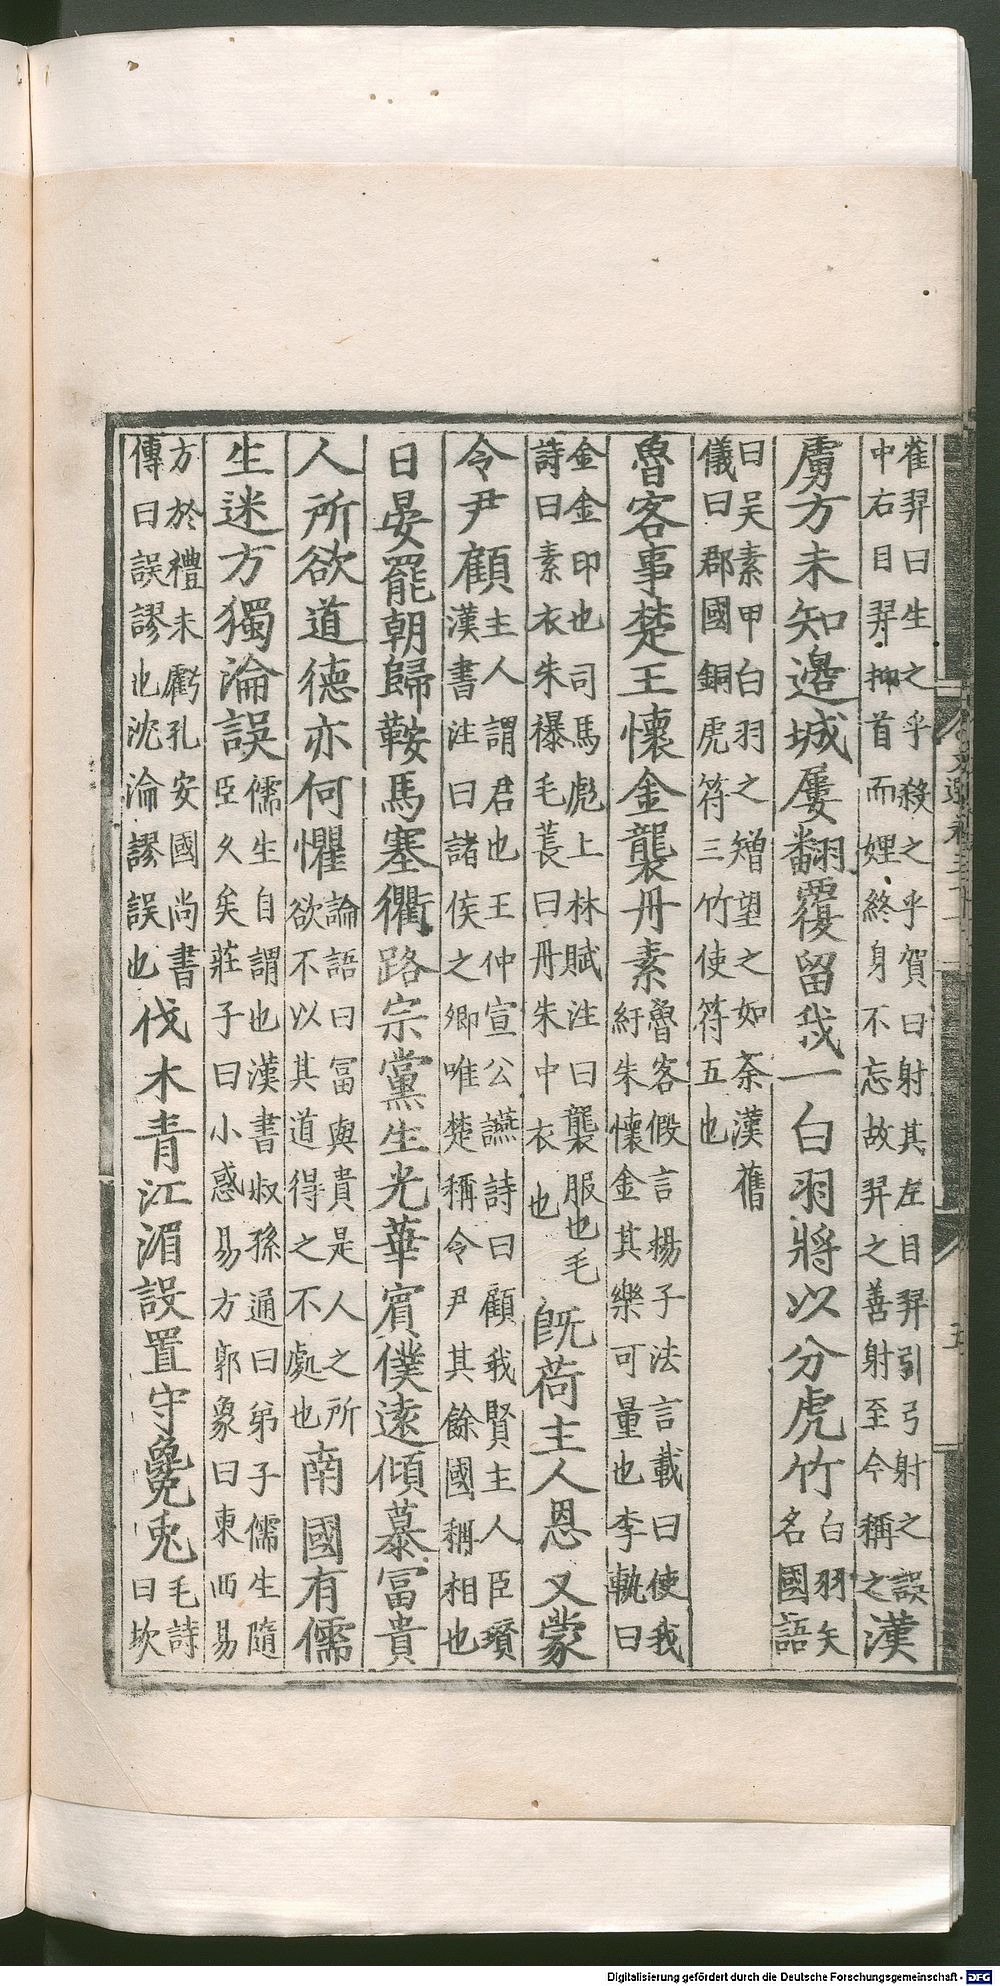 雀羿曰生之乎殺之乎賀曰射其左目羿引弓射之誤
中右目羿抑首而娌終身不忘故羿之善射至今稱之漢
虜方未知邊城屢翻覆留我一白羽將以分虎竹白羽矢名國語
曰吴素甲白羽之矰望之如荼漢舊
儀曰郡國銅虎符三竹使符五也
魯客事楚王懷金襲丹素魯客假言楊子法言載曰使我紆朱懷金其樂可量也李軌曰
金金印也司馬彪上林賦注曰襲服也毛
詩曰素衣朱襮毛萇曰丹朱中衣也既荷主人恩又蒙
令尹顧主人謂君也王仲宣公讌詩曰顧我賢主人臣瓚漢書注曰諸侯之卿唯楚稱令尹其餘國稱相也
日晏罷朝歸鞍馬塞衢路宗黨生光華賓僕遠傾慕冨貴
人所欲道德亦何懼論語曰冨與貴是人之所欲不以其道得之不處也南國有儒
生迷方獨淪誤儒生自謂也漢書叔孫通曰弟子儒生隨臣久矣莊子曰小惑易方郭象曰東西易
方於禮未虧孔安國尚書
傳曰誤謬也沈淪謬誤也伐木青江湄設置守毚兎毛詩曰坎
五
Digitalisierung gefördert durch die Deutsche Forschungsgemeinschaft - DFG